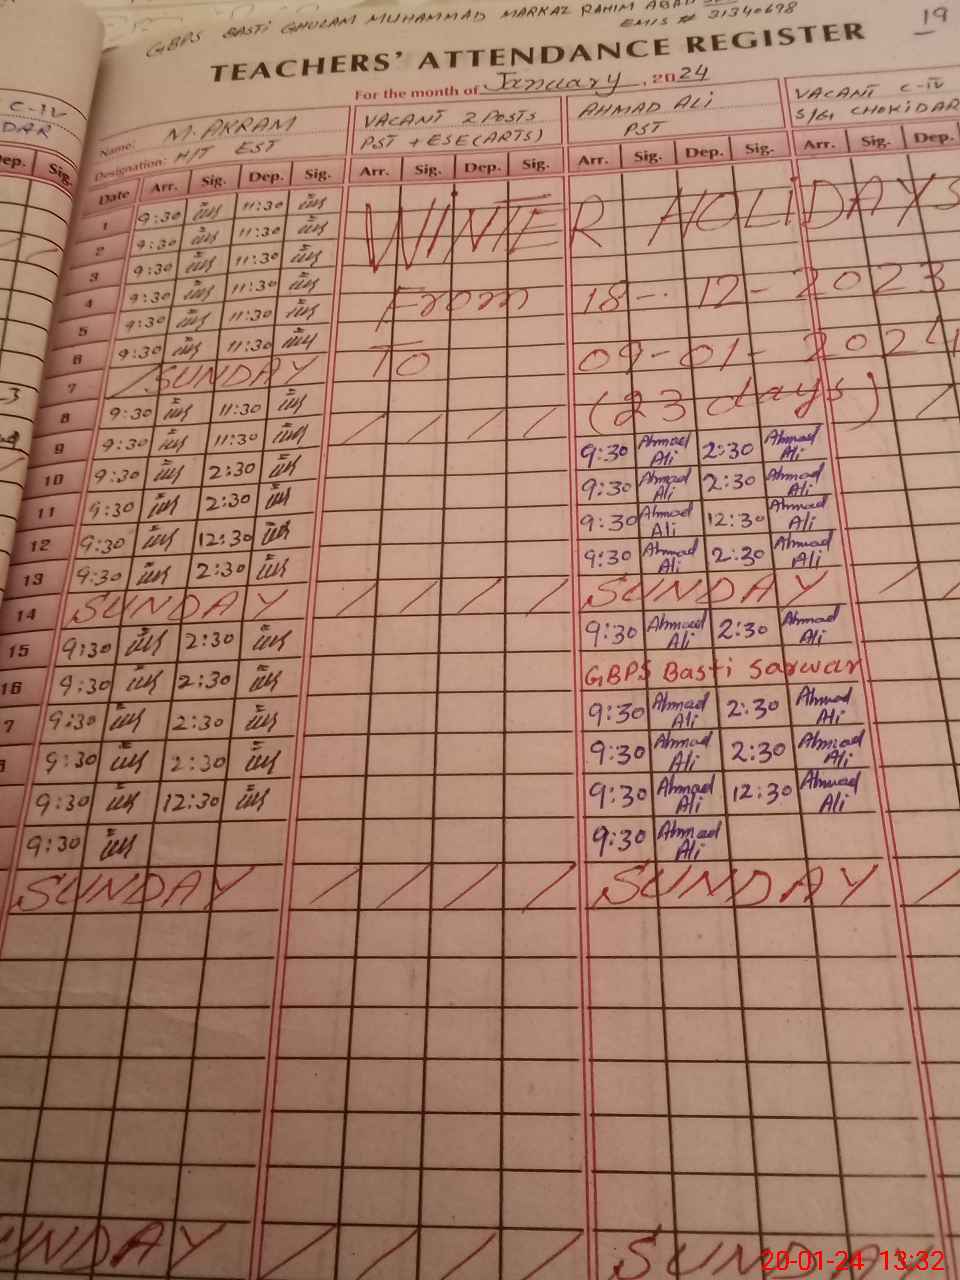 GBPS BASTI GHULAM MUHAMMAD MARKAZ RAHIM ABAD
EMIS # 31340698
19
TEACHERS' ATTENDANCE REGISTER
For the month of January, 2024
Name: M. AKRAM VACANT 2 POSTS AHMAD ALI VACANT C-IV
Designation: H/T EST PST + ESE (ARTS) PST S/G CHOKIDAR
C-IV
DAR
Dep. Sig.
Date Arr. Sig. Dep. Sig. Arr. Sig. Dep. Sig. Arr. Sig. Dep. Sig. Arr. Sig. Dep.
1 9:30 11:30
2 9:30 11:30
3 9:30 11:30
4 9:30 11:30
5 9:30 11:30
6 9:30 11:30
WINTER HOLIDAYS
From 18-12-2023
To 09-01-2024
(23 days)
7 SUNDAY
8 9:30 11:30
9 9:30 11:30
10 9:30 2:30 9:30 Ahmad Ali 2:30 Ahmad Ali
11 9:30 2:30 9:30 Ahmad Ali 2:30 Ahmad Ali
12 9:30 12:30 9:30 Ahmad Ali 12:30 Ahmad Ali
13 9:30 2:30 9:30 Ahmad Ali 2:30 Ahmad Ali
14 SUNDAY / / / / SUNDAY / /
15 9:30 2:30 9:30 Ahmad Ali 2:30 Ahmad Ali
16 9:30 2:30 GBPS Basti Sarwar
7 9:30 2:30 9:30 Ahmad Ali 2:30 Ahmad Ali
8 9:30 2:30 9:30 Ahmad Ali 2:30 Ahmad Ali
9:30 12:30 9:30 Ahmad Ali 12:30 Ahmad Ali
9:30 9:30 Ahmad Ali
SUNDAY / / / / SUNDAY /
UNDAY / / / / SUNDAY
20-01-24 13:32